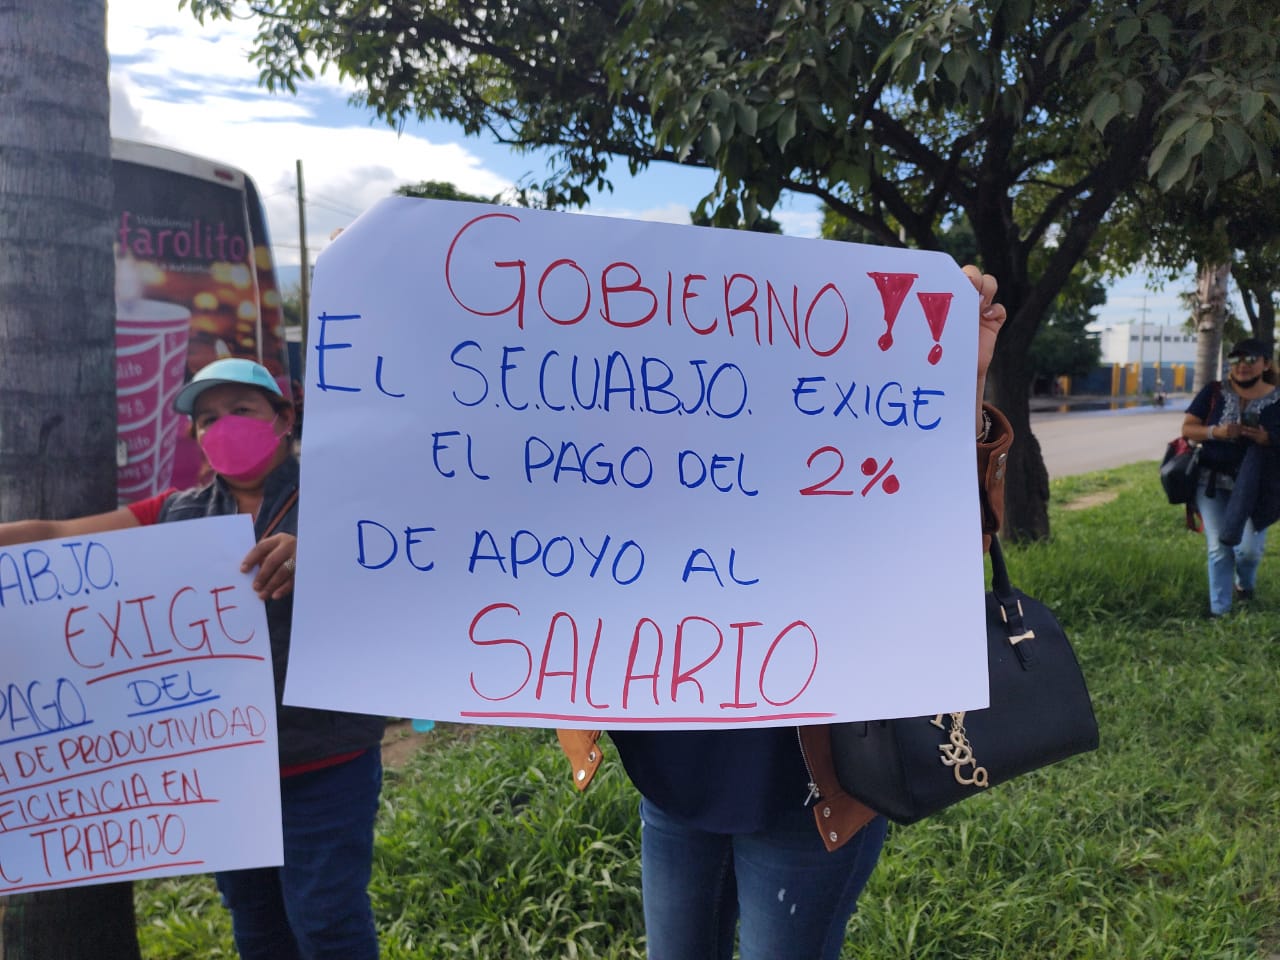 GOBIERNO !!
EL S.E.C.U.A.B.J.O. EXIGE
EL PAGO DEL 2%
DE APOYO AL
SALARIO
A.B.J.O.
EXIGE
PAGO DEL
A DE PRODUCTIVIDAD
FICIENCIA EN
L TRABAJO
farolito